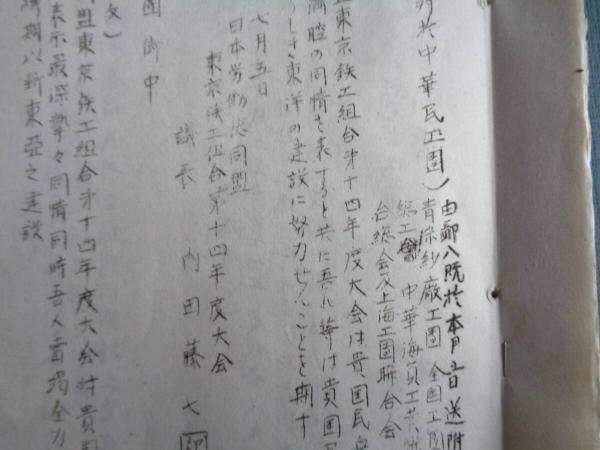 對於中華民国）由郵八既於本月五日送附
青島紗廠工團 全国工團
総工會 中華海員工業聯
合総会及上海工團聯合会
東京鉄工組合第十四年度大会は貴国民
満腔の同情を表すると共に吾れ等は貴国
しき東洋の建設に努力せんことを期す
七月五日
日本労働総同盟
東京鉄工組合第十四年度大会
議長 内田藤七 印
團御中
文）
盟東京鉄工組合第十四年度大会对貴
表示最深摯々同情同時吾人當竭全力
期以新東亞之建設